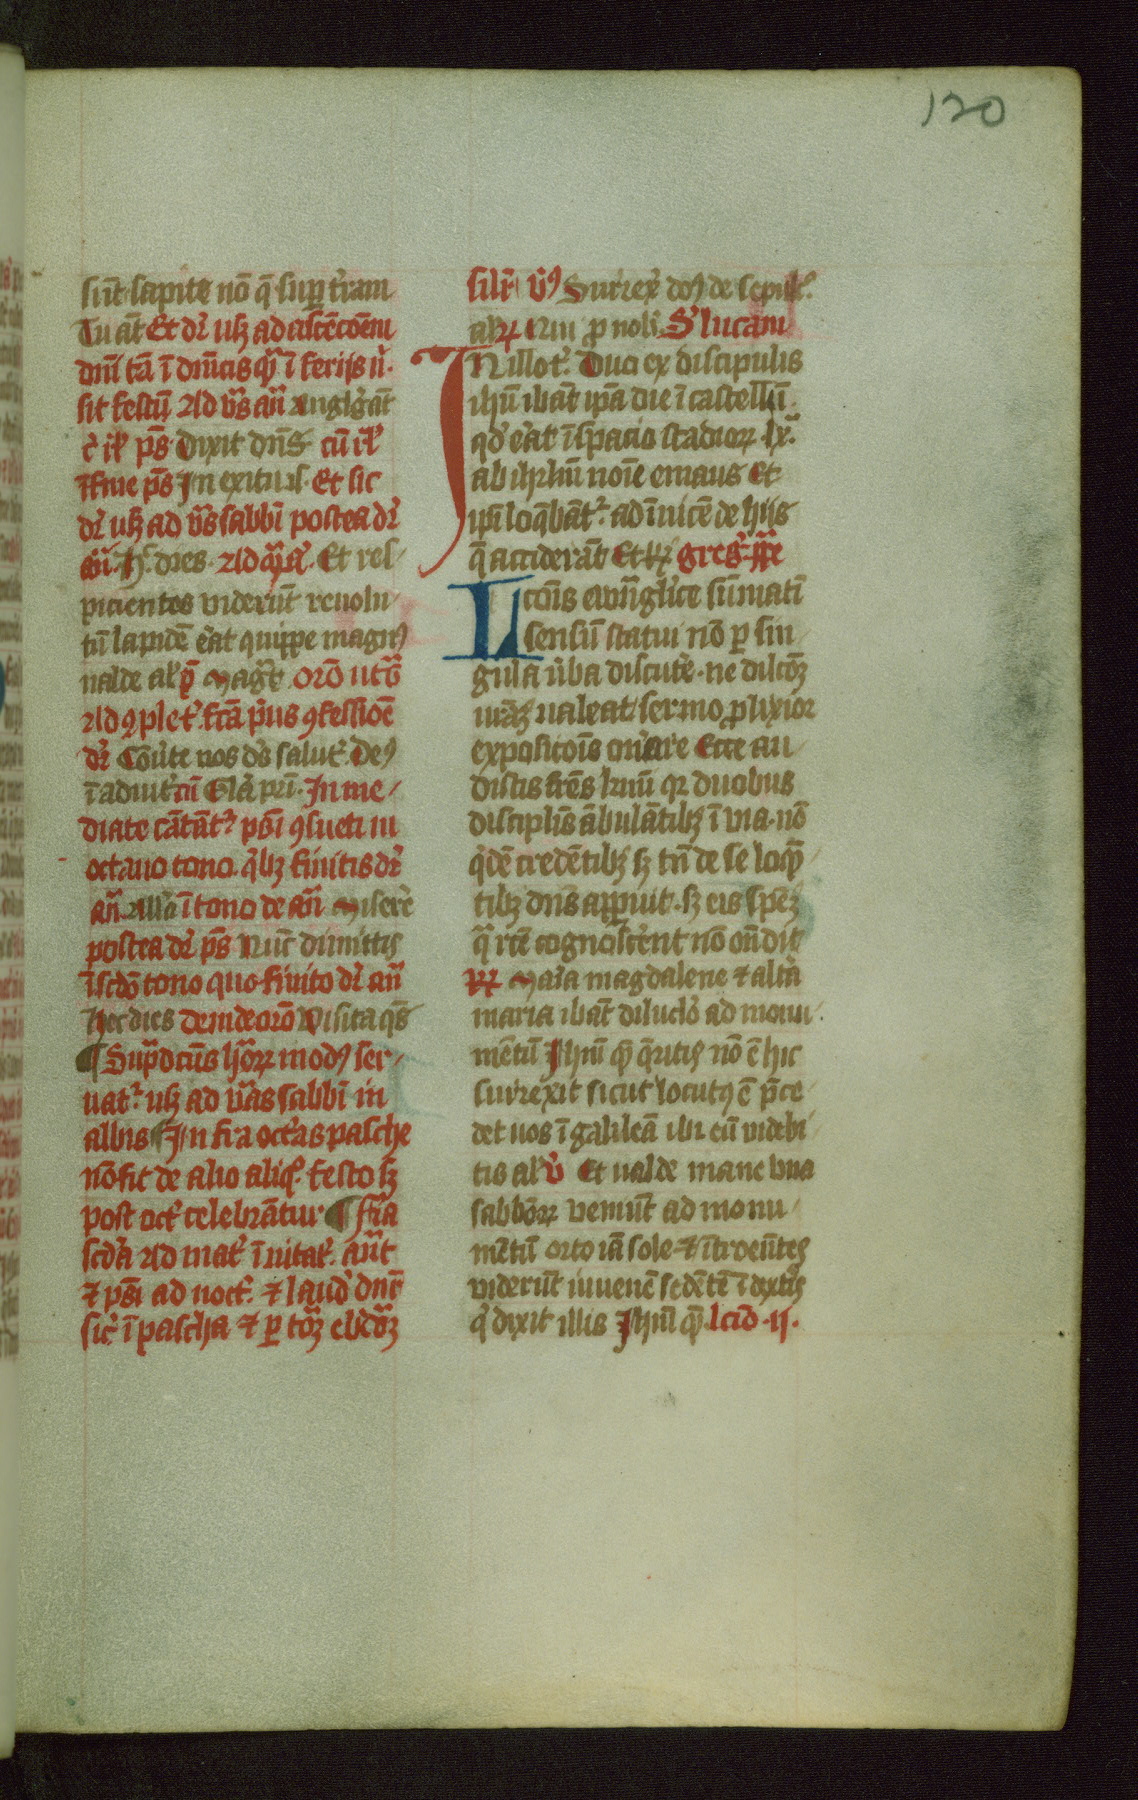 120
sūt sapite nō q̄ sup̱ t̓ram
Tu aūt Et dr̄ usq̨ ad ascēcōem
dnī tā ī dnīcis qͣ ī ferijs n̄
sit festū Ad v̓s añ Anglꝰ āt
Dixit dns̄ cū
ps̄ In exitu isl̄ Et sic
dr̄ usq̨ ad v̓s sabbī postea dr̄
Et res
picientes viderūt revolu
tū lapidē erat quippe magnꝰ
valde al̓
Ad ꝯplet̓ fc̄a pͥus ꝯfessiōe
dr̄ Cōv̓te nos ds̄ salut̓ Deꝰ
ī adiut̓ cū Gl̓a pr̄i In me
diate cātāt̓ ps̄i ꝯsueti in
octavo tono qͥbȝ finitis dr̄
añ all̓a ī tono de añ Miserē
postea dr̄ ps̄ Nūc dimittis
ī scd̄o tono quo finito dr̄ añ
hec dies deinde orō Visita qs̄
Sup̱dcūs horꝝ modꝰ ser
vat̓ usq̨ ad v̓as sabbī in
albis In fra octas pasche
nō fit de alio aliqͦ festo sȝ
post oct̓ celebrātur fr̄ia
scd̓a Ad mat̓ ī vitat̓ añt
⁊ ps̄i ad noct̓ ⁊ laud̓ dnr̄
sic̓ ī pascha ⁊ p̱ totā ebdōȝ
silr̄ v̓s Surrex̓ dn̄s de sepulc̓
qui p̱ nobis S̓ lucam
IN illo t̓ Duo ex discipulis
ihū ibāt ip̄a die ī castellū
qd̓ erat ī spacio stadiorꝝ lxͣ
ab ihrlm̄ noīe emaus Et
ip̄i loq̄bāt̓ ad īuicē de hijs
q̄ acciderāt Et rͤ greg̓ pp̄e
Lcōīs ewāglice sūmatī
sensū statui nō p̱ sin
gula v̓ba discut̓e ne dilcōȝ
urāȝ valeat sermo ꝓlixior
expositōīs on̓are Ecce au
distis fr̄es krmi qr̄ duobus
disciplīs ābulātibȝ ī via nō
qͥdē credētibȝ sȝ tn̄ de se loq̄
tibȝ dns̄ appuit sȝ eis spēȝ
qͣ rec̄ cognosc̓ent nō on̄dit
R Maria magdalene ⁊ alt̓a
maria ibāt diluclo ad monu
mētū Ihm̄ quē q̄ritis nō ē hic
surrexit sicut locutꝰ ē p̄ce
det vos ī galileā ibi eū videbi
tis al̓ v̓ Et valde mane una
sabbōrꝝ veniūt ad monu
mētū orto iā sole ⁊ ītroeūtes
viderūt iuvenē sedētē ī dext̓s
qͥ dixit illis Ihm̄ quē lcīo ·ij·